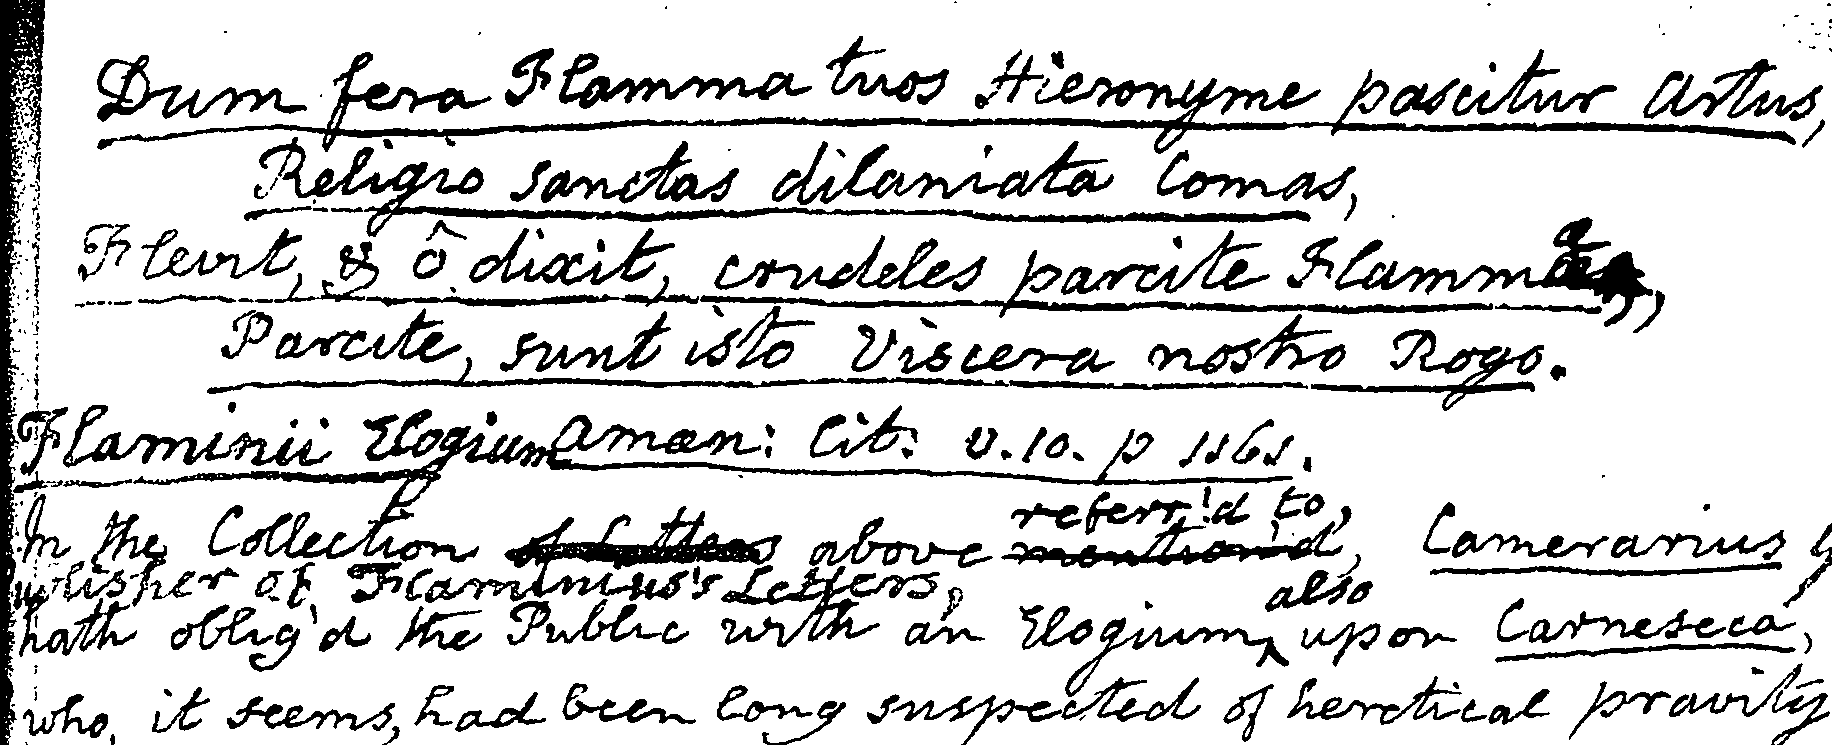 Dum fera Flamma tuos Hieronyme pascitur Artus,
Religio sanctas dilaniata Comas,
Flevit, & ô dixit, crudeles parcite Flammae,
Parcite, sunt isto Viscera nostro Rogo.
Flaminii Elogium Amæn: Lit: v.10. p 1161.
referr'd to,
In the Collection of Letters above mention'd, Camerarius y
ublisher of Flaminius's Letters, also
hath oblig'd the Public with an Elogium, upon Carneseca,
who, it seems, had been long suspected of heretical pravity